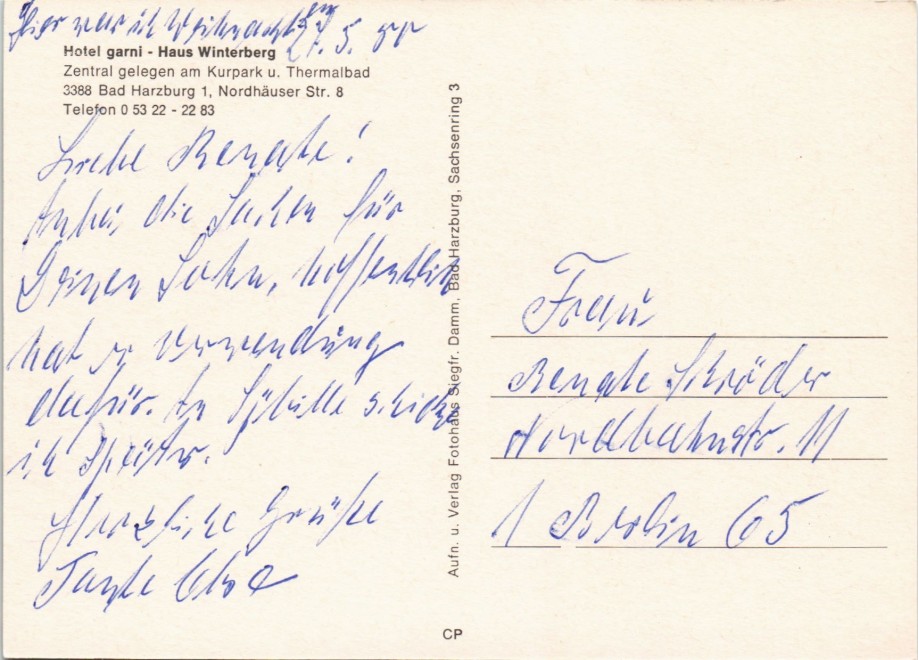 Hier war ich Weihnachten
27. 5.
Hotel garni - Haus Winterberg
Zentral gelegen am Kurpark u. Thermalbad
3388 Bad Harzburg 1, Nordhäuser Str. 8
Telefon 0 53 22 - 22 83
Liebe Renate!
Anbei die Sachen für
Deinen Sohn, hoffentlich
hat er Verwendung
dafür. An Sybille schicke
ich später.
Herzliche Grüße
Tante
Aufn. u. Verlag Fotohaus Siegfr. Damm, Bad Harzburg, Sachsenring 3
Frau
Renate Schröder
Nordbahnstr. 11
1 Berlin 65
CP